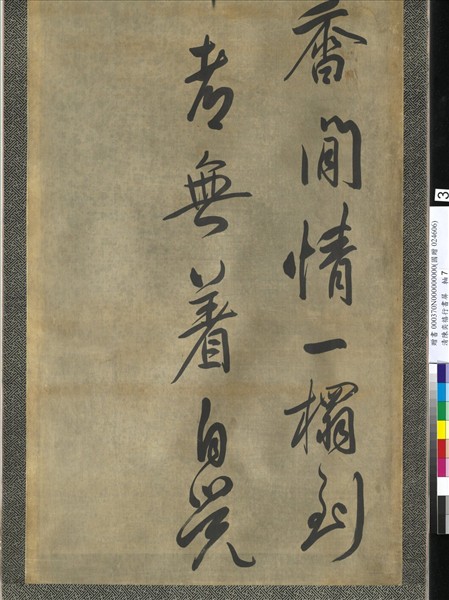 香閒情一榻到
都無着自覺
3
贈書 000370N000000000(國贈 024606)
清陳奕禧行書屏 軸 7